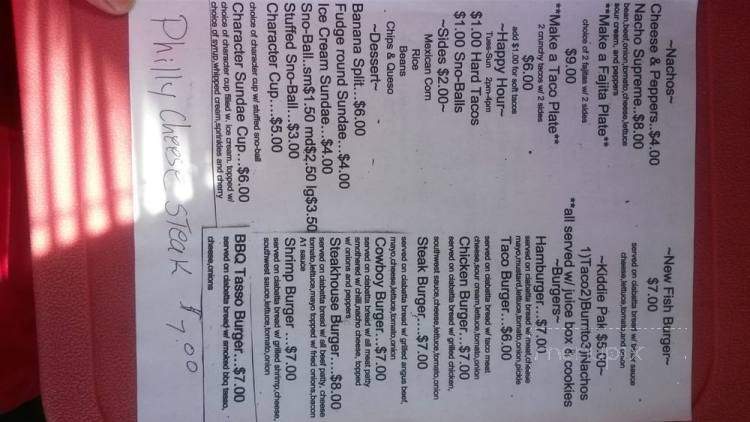 ~Nachos~
Cheese & Peppers...$4.00
Nacho Supreme...$8.00
bean,beef,onion,tomato,cheese,lettuce
sour cream, and peppers
**Make a Fajita Plate**
choice of 2 fajitas w/ 2 sides
$9.00
**Make a Taco Plate**
2 crunchy tacos w/ 2 sides
$6.00
add $1.00 for soft tacos
~Happy Hour~
Tues-Sun 2pm-4pm
$1.00 Hard Tacos
$1.00 Sno-Balls
~Sides $2.00~
Mexican Corn
Rice
Beans
Chips & Queso
~Dessert~
Banana Split...$6.00
Fudge round Sundae...$4.00
Ice Cream Sundae...$4.00
Sno-Ball..sm$1.50 md$2.50 lg$3.50
Stuffed Sno-Ball...$3.00
Character Cup....$5.00
choice of character cup w/ stuffed sno-ball
Character Sundae Cup...$6.00
choice of character cup filled w. ice cream. topped w/
choice of syrup,whipped cream,sprinkles and cherry
~New Fish Burger~
$7.00
served on ciabatta bread w/ sauce
cheese,lettuce,tomato,and onion
~Kiddie Pak $5.50~
1)Taco2)Burrito3)Nachos
**all served w/ juice box & cookies
~Burgers~
Hamburger...$7.00
served on ciabatta bread w/ meat,cheese
mayo,mustard,lettuce,tomato,onion,pickle
Taco Burger...$6.00
served on ciabatta bread w/ taco meat
cheese,sour cream,lettuce,tomato,onion
Chicken Burger...$7.00
served on ciabatta bread w/ grilled chicken,
southwest sauce,cheese,lettuce,tomato,onion
Steak Burger....$7.00
served on ciabatta bread w/ grilled angus beef,
mayo,cheese,lettuce,tomato,onion
Cowboy Burger...$7.00
served on ciabatta bread w/ all meat patty
smothered w/ chili,nacho cheese, topped
w/ onions and peppers
Steakhouse Burger....$8.00
served on ciabatta bread w/ all beef patty, cheese
tomato,lettuce,mayo topped w/ fried onions,bacon
A1 sauce
Shrimp Burger ...$7.00
served on ciabatta bread w/ grilled shrimp,cheese,
southwest sauce,lettuce,tomato,onion
BBQ Tasso Burger...$7.00
served on ciabatta bread w/ smoked bbq tasso,
cheese,onions
Philly Cheese Steak $7.00